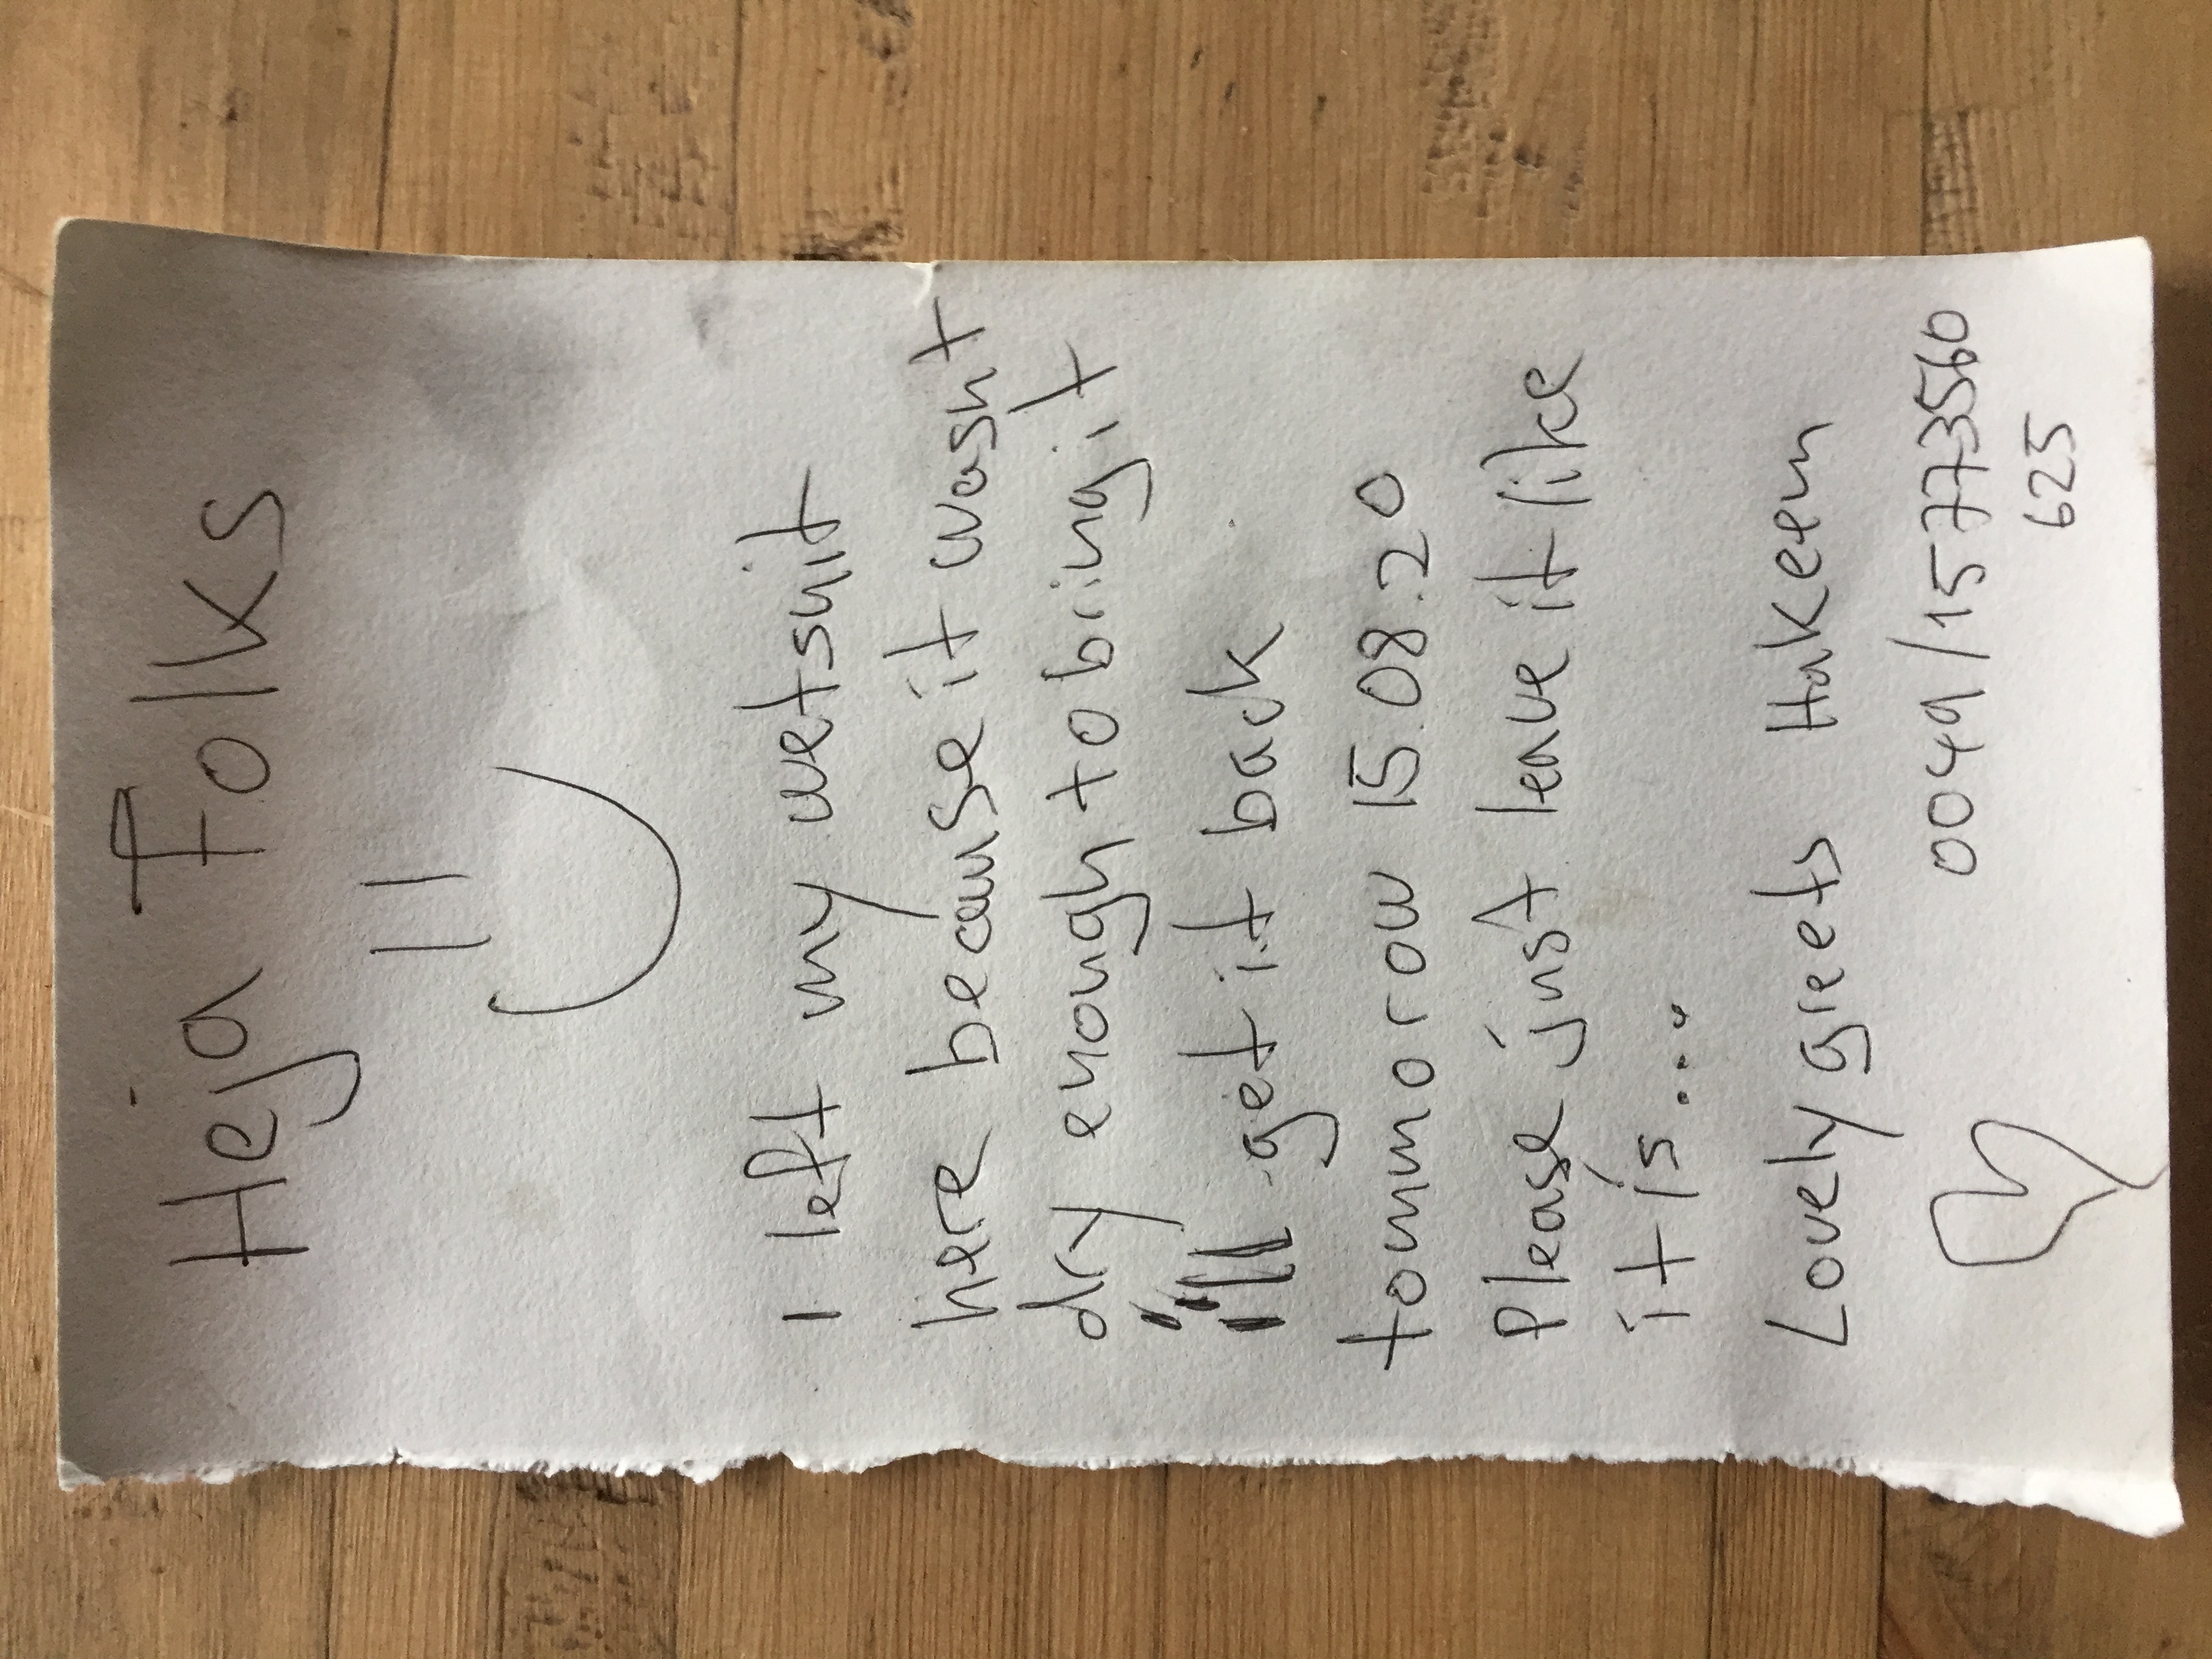 Heja Folks
I left my wetsuit
here because it wasnt
dry enough to bring it
i'll get it back
tommorow 15.08.20
Please just leave it like
it is...
Lovely greets Hakeem
0049/15773560
625